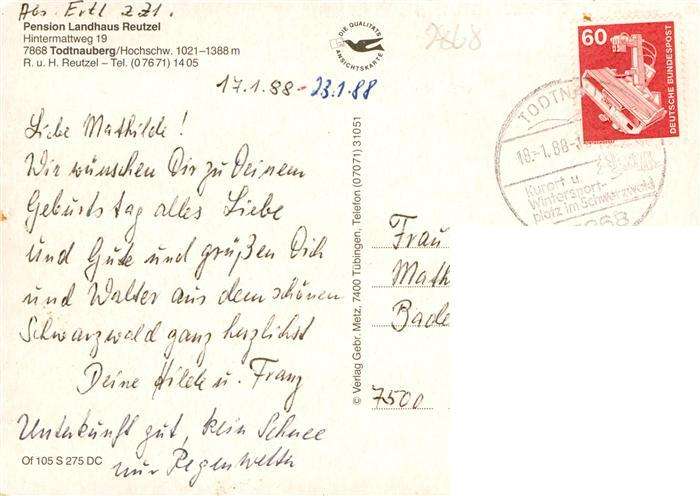 Abs. Ertl z.Zt.
Pension Landhaus Reutzel
Hintermattweg 19
7868 Todtnauberg/Hochschw. 1021–1388 m
R. u. H. Reutzel – Tel. (0 76 71) 14 05
DIE QUALITÄTS
ANSICHTSKARTE
2868
17.1.88-23.1.88
Liebe Mathilde!
Wir wünschen Dir zu Deinem
Geburtstag alles Liebe
und Gute und grüßen Dich
und Walter aus dem schönen
Schwarzwald ganz herzlichst
Deine Hilde u. Franz
Unterkunft gut, kein Schnee
nur Regenwetter
Of 105 S 275 DC
© Verlag Gebr. Metz, 7400 Tübingen, Telefon (07071) 31051
60
DEUTSCHE BUNDESPOST
TODTNA
18.-1.88-
Kurort u.
Wintersport-
platz im Schwarzwald
Frau
Math
Bade
7500